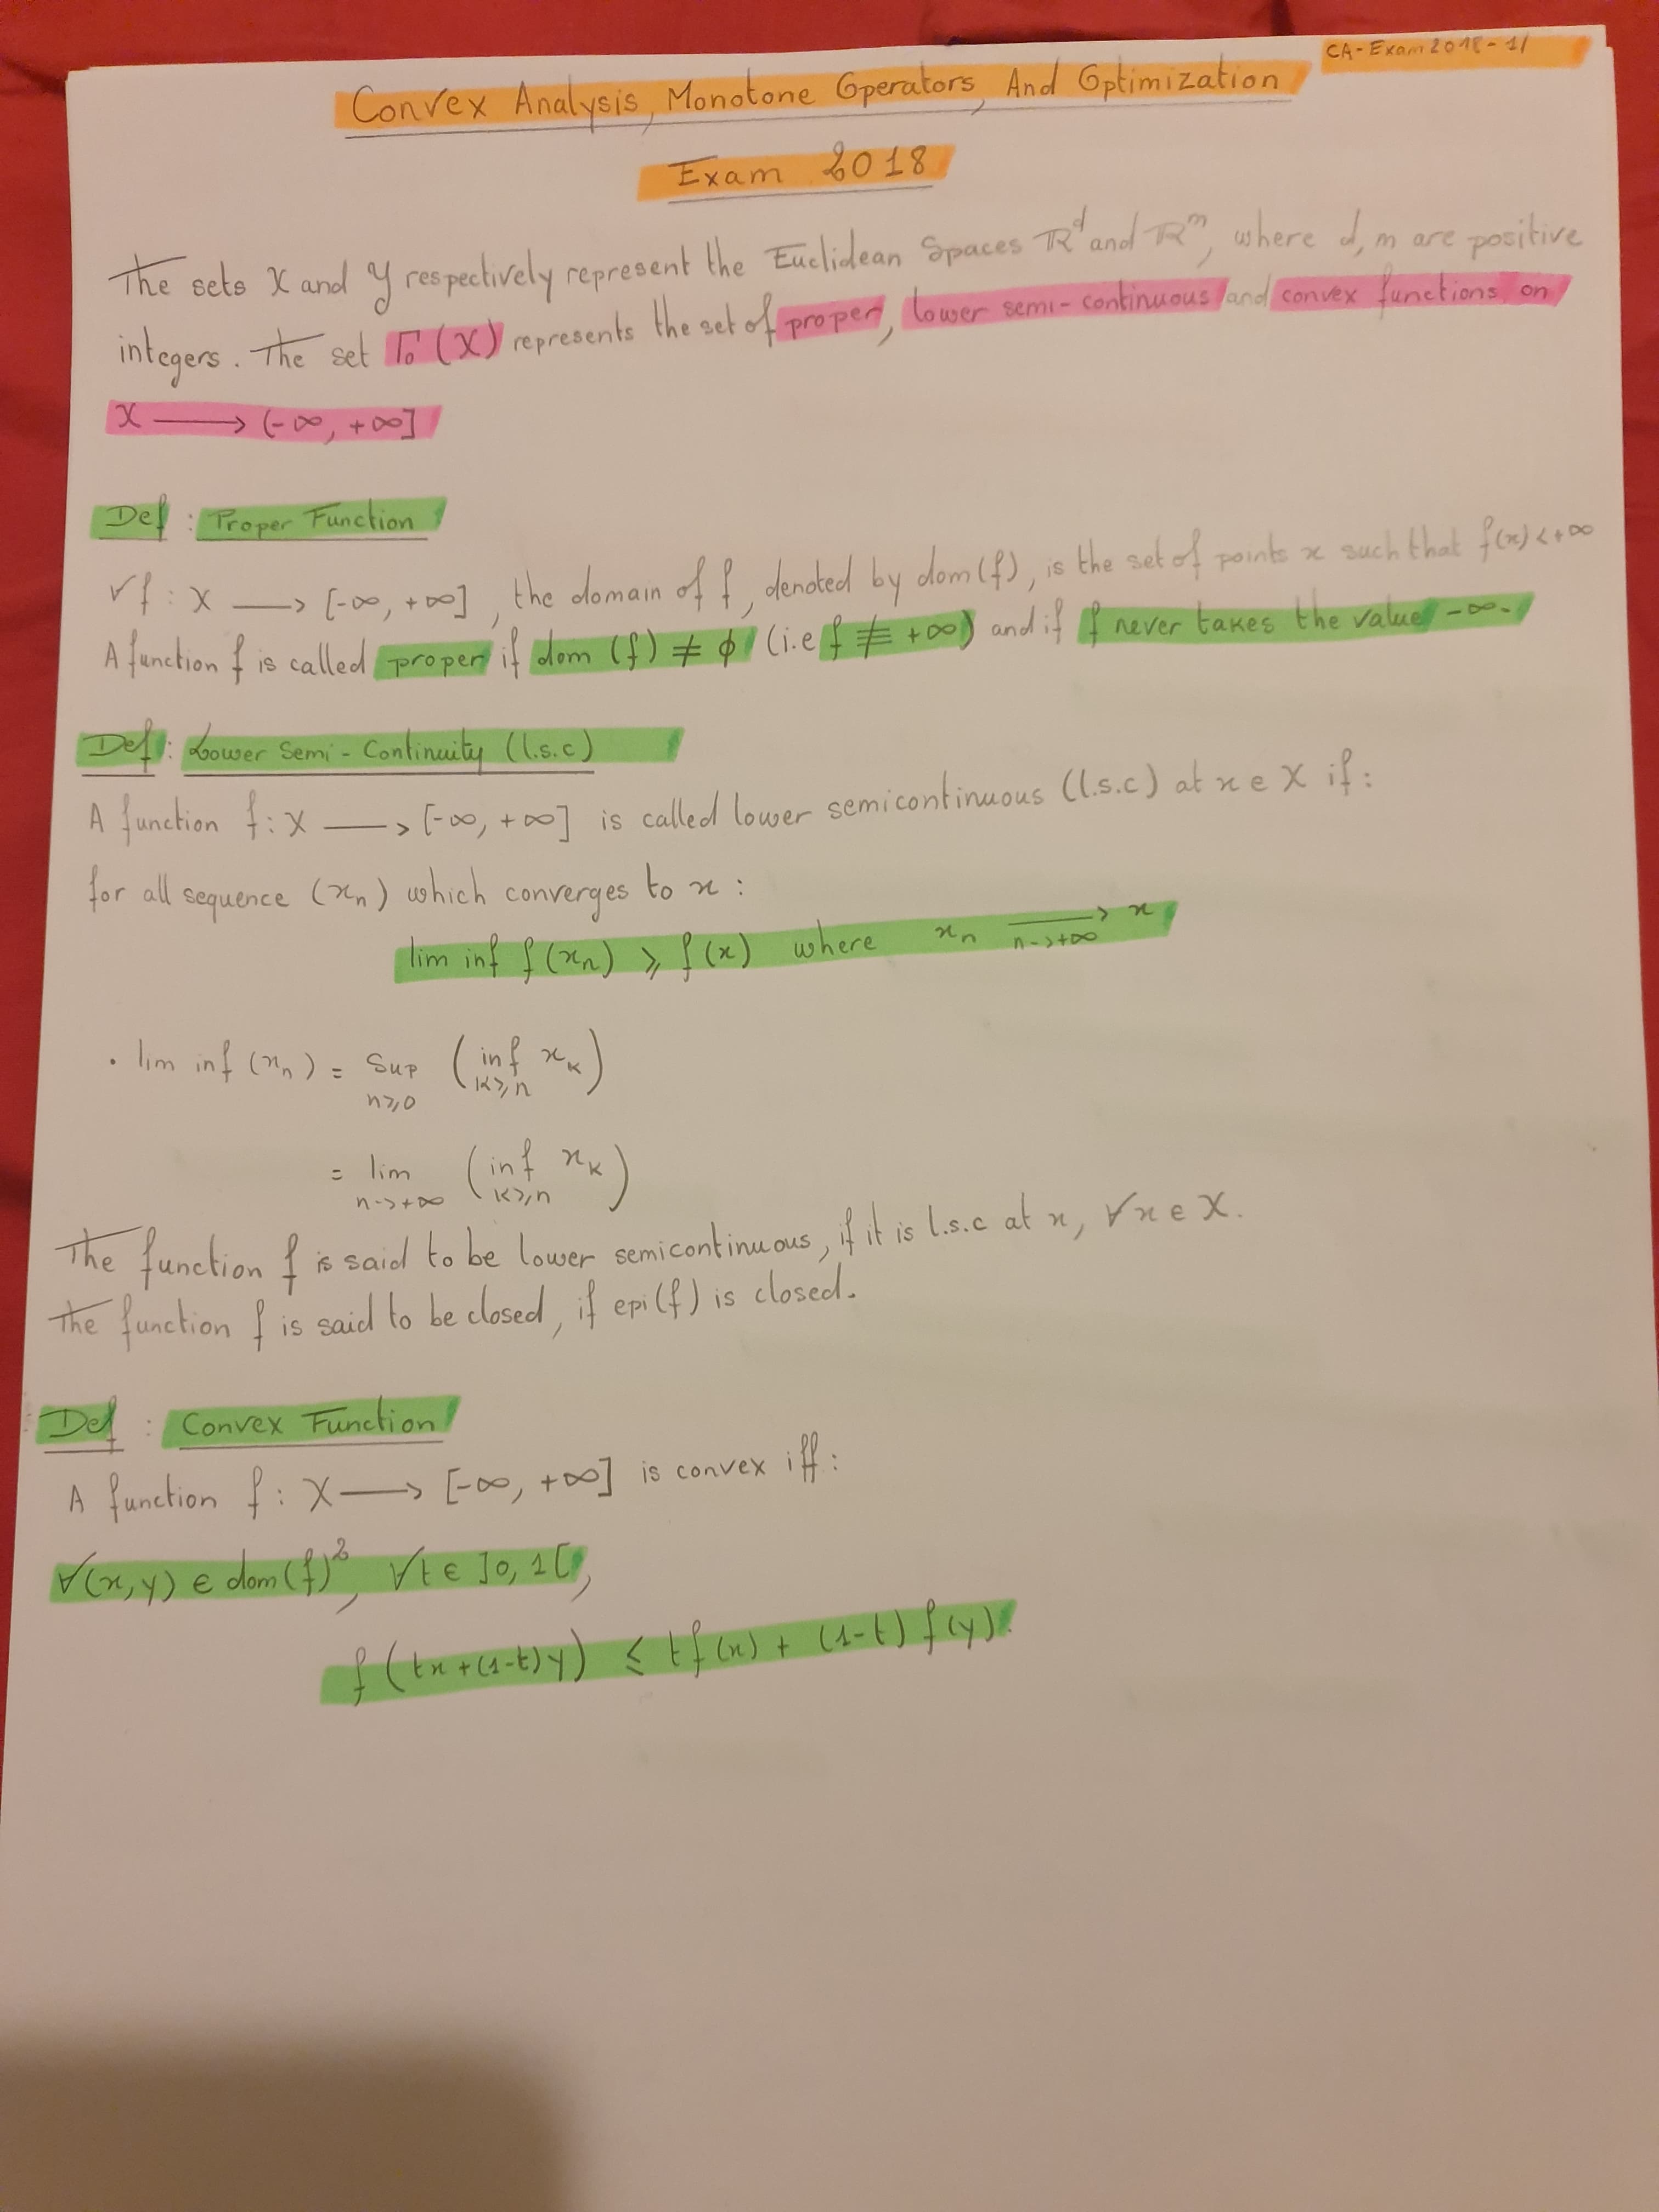 CA-Exam 2018-1/
Convex Analysis, Monotone Operators, And Optimization
Exam 2018
The sets X and Y respectively represent the Euclidean Spaces ℝᵈ and ℝᵐ, where d, m are positive
integers. The set Γ₀(X) represents the set of proper, lower semi-continuous and convex functions on
X ⟶ (-∞, +∞]
Def : Proper Function
∀f : X ⟶ [-∞, +∞], the domain of f, denoted by dom(f), is the set of points x such that f(x) < +∞
A function f is called proper if dom (f) ≠ ϕ (i.e f ≢ +∞) and if f never takes the value -∞.
Def : Lower Semi-Continuity (l.s.c)
A function f : X ⟶ [-∞, +∞] is called lower semicontinuous (l.s.c) at x ∈ X if :
for all sequence (xₙ) which converges to x :
lim inf f(xₙ) ⩾ f(x) where xₙ ⟶ x
n->+∞
. lim inf (xₙ) = Sup ( inf xₖ )
n⩾0 k⩾n
= lim ( inf xₖ )
n->+∞ k⩾n
The function f is said to be lower semicontinuous, if it is l.s.c at x, ∀x ∈ X.
The function f is said to be closed, if epi(f) is closed.
Def : Convex Function
A function f : X ⟶ [-∞, +∞] is convex iff :
∀(x,y) ∈ dom(f)², ∀t ∈ ]0,1[,
f(tx+(1-t)y) ⩽ tf(x) + (1-t) f(y).